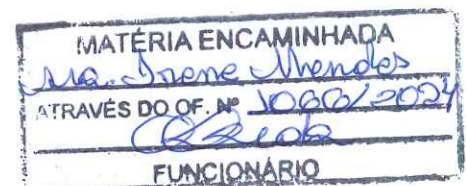 MATÉRIA ENCAMINHADA
Ma. Irene Mendes
ATRAVÉS DO OF. Nº 1066/2024
FUNCIONÁRIO